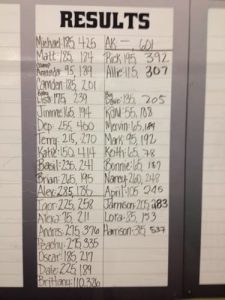 RESULTS
Michael 185, 425
Matt 185, 184
Alexander 95, 189
Camden 185, 201
Lisa 175, 239
Jimmie 165, 194
Dep 255, 460
Terry 215, 270
Kate 150, 414
Basil 235, 241
Brian 265, 195
Alex 285, 185
Igor 225, 258
Alexa 75, 211
Andres 275, 376
Peachy 275, 335
Oscar 185, 217
Dale 225, 189
Brittany 110, 326
AK —, 601
Rick 145, 392
Allie 115, 307
Dave 135, 205
KJW 55, 188
Mervin 65,
Mark 95, 192
Keith 65, 78
Bonnie 65, 187
Nancy 260, 248
April 105, 245
Jamison 205, 283
Lora 85, 153
Harrison 315, 537